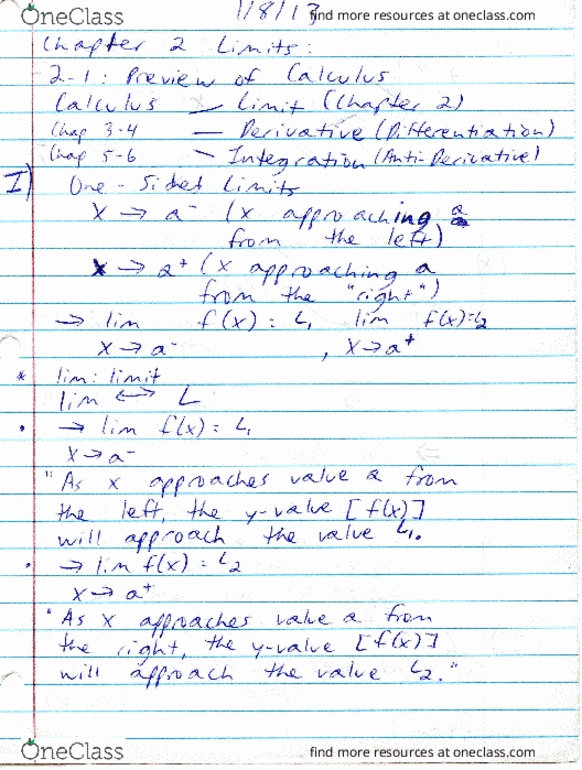 OneClass
1/8/13
find more resources at oneclass.com
Chapter 2 Limits:
2-1: Preview of Calculus
Calculus — Limit (Chapter 2)
Chap 3-4 — Derivative (Differentiation)
Chap 5-6 — Integration (Anti-Derivative)
I) One-Sided Limits
x → a⁻ (x approaching a
from the left)
x → a⁺ (x approaching a
from the "right")
→ lim f(x) = L₁ lim f(x)=L₂
x → a⁻ , x → a⁺
* lim: limit
lim ↔ L
• → lim f(x) = L₁
x → a⁻
"As x approaches value a from
the left, the y-value [f(x)]
will approach the value L₁.
• → lim f(x) = L₂
x → a⁺
"As x approaches value a from
the right, the y-value [f(x)]
will approach the value L₂."
OneClass
find more resources at oneclass.com